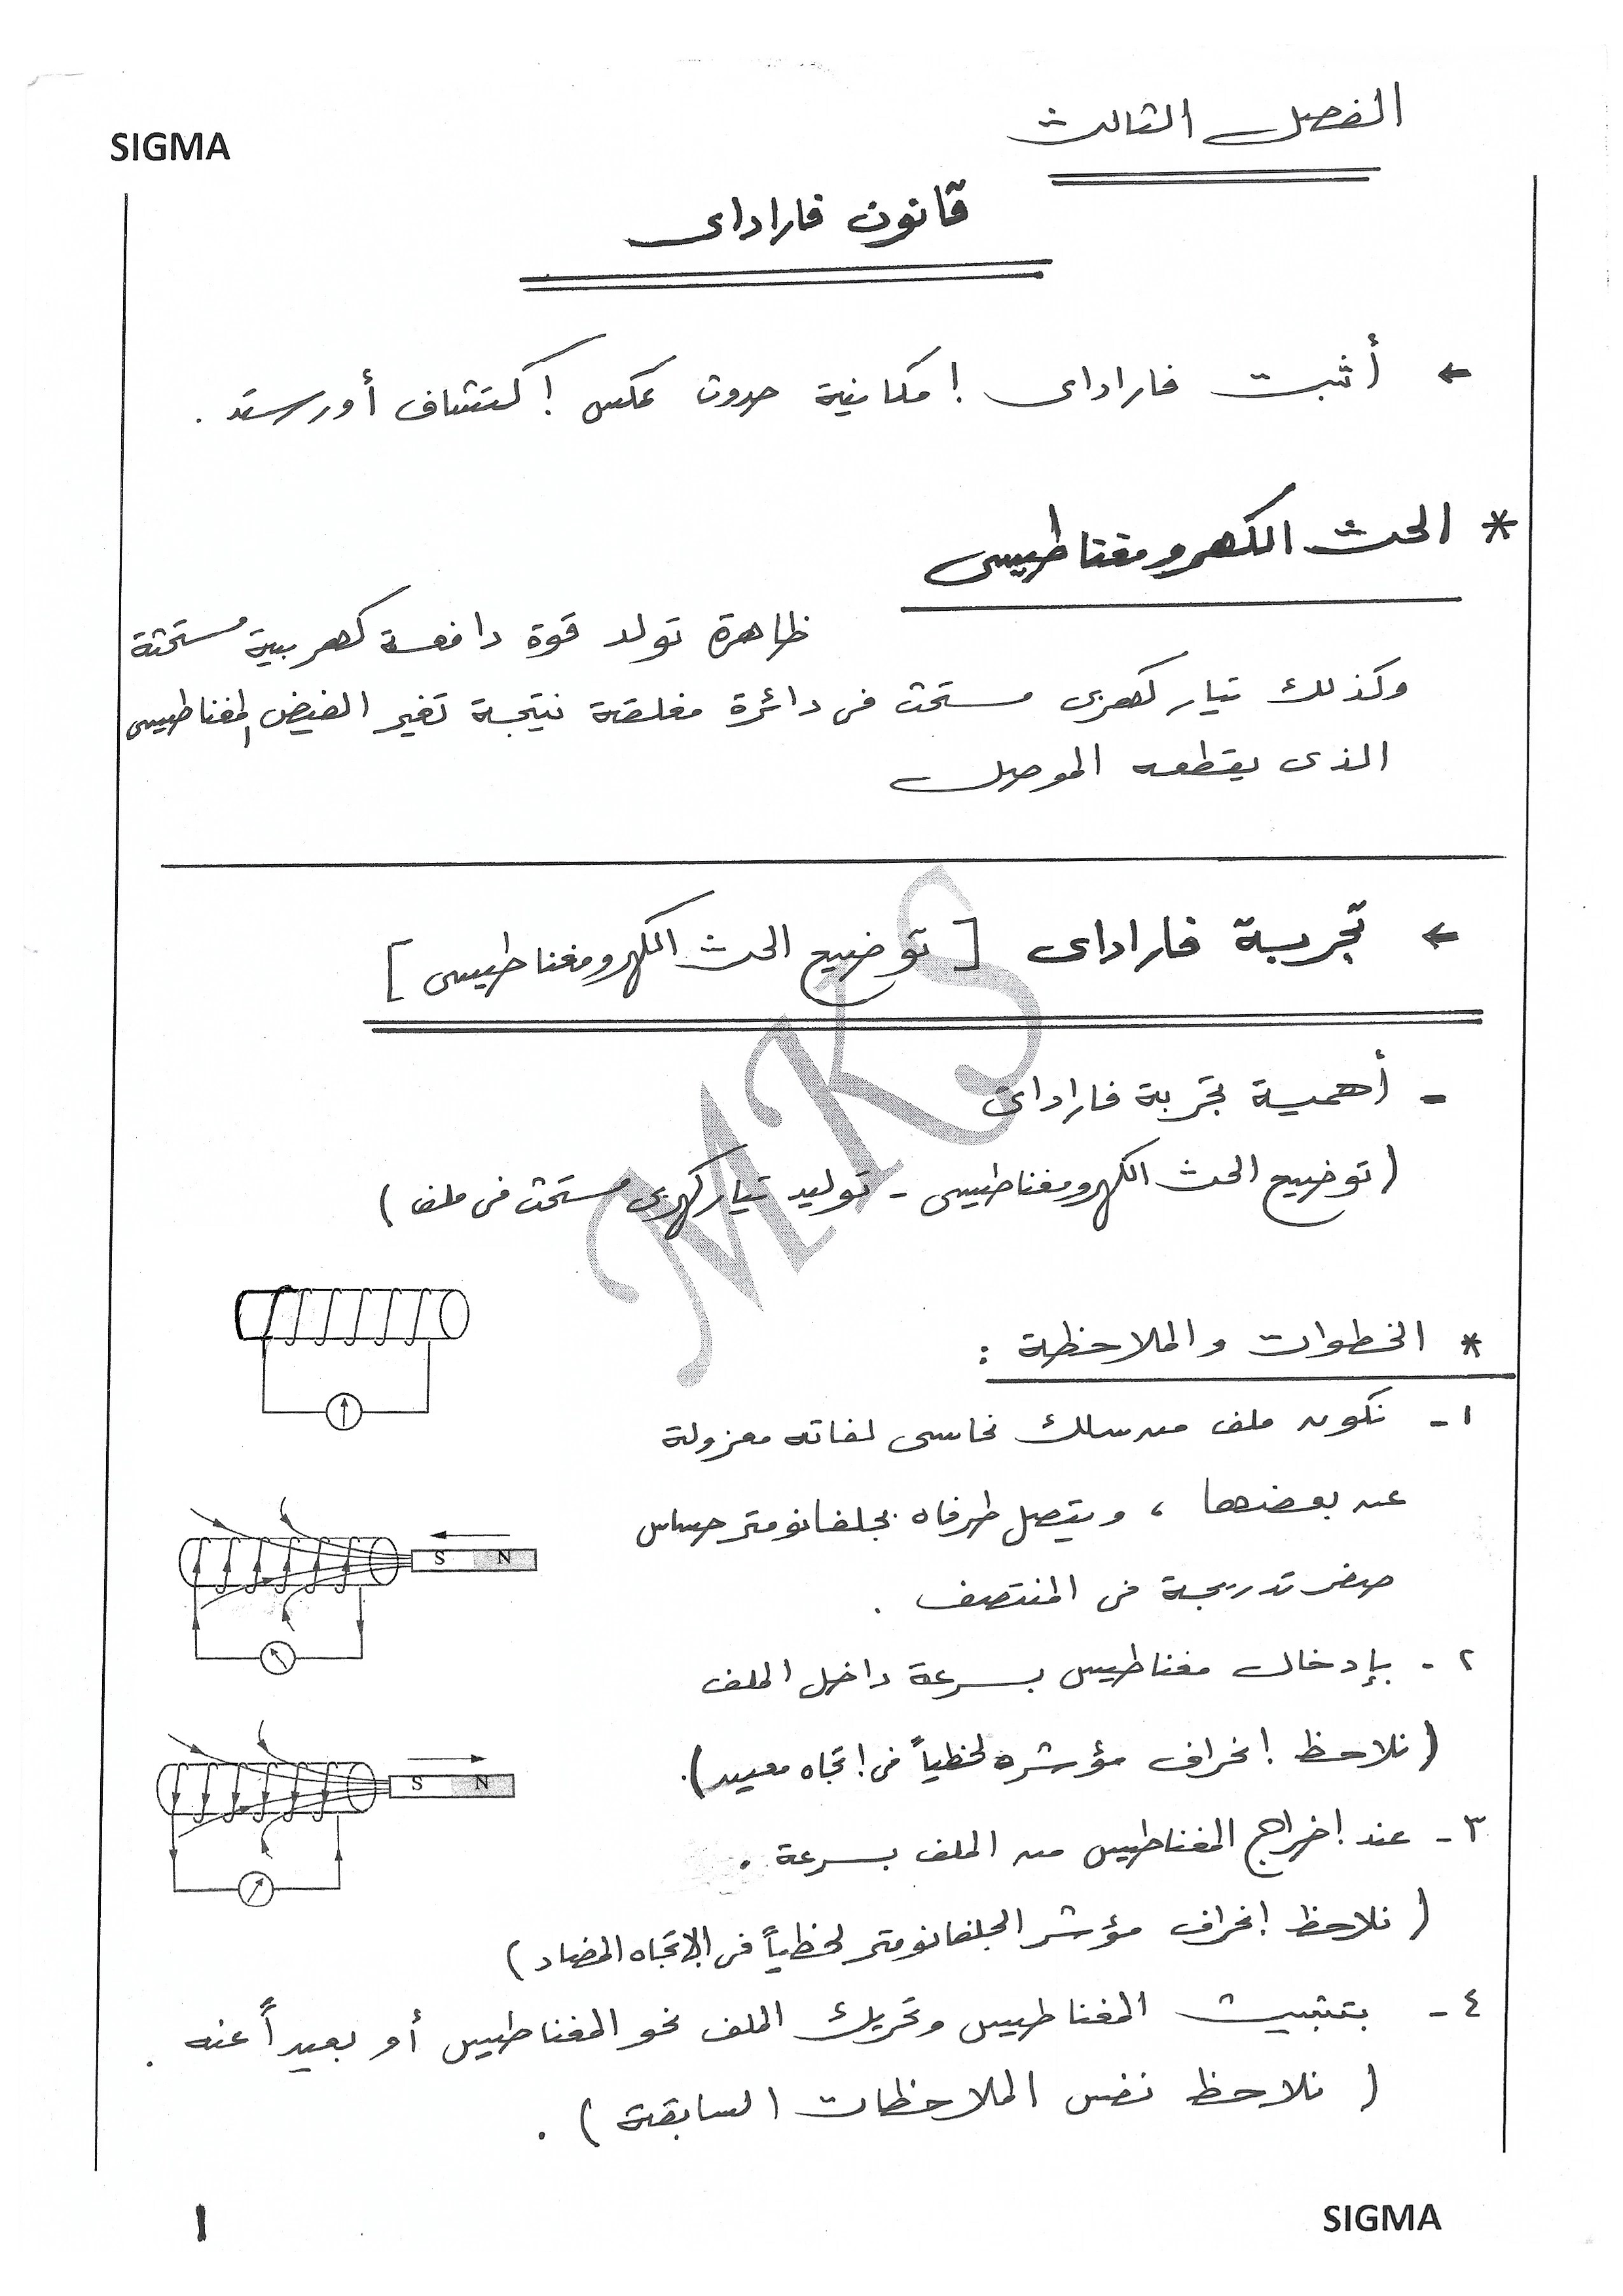 الفصل الثالث
SIGMA
قانون فاراداى
← أثبت فاراداى إمكانية حدوث عكس إكتشاف أورستد .
* الحث الكهرومغناطيسى
ظاهرة تولد قوة دافعة كهربية مستحثة
وكذلك تيار كهربى مستحث فى دائرة مغلقة نتيجة تغير الفيض المغناطيسى
الذى يقطعه الموصل
← تجربة فاراداى [ توضيح الحث الكهرومغناطيسى ]
- أهمية تجربة فاراداى
( توضيح الحث الكهرومغناطيسى - توليد تيار كهربى مستحث فى ملف )
* الخطوات والملاحظة :
١- نكون ملف من سلك نحاسى لفاته معزولة
عن بعضها ، ويتصل طرفاه بجلفانومتر حساس
صفر تدريجة فى المنتصف .
S N
٢- بإدخال مغناطيس بسرعة داخل الملف
( نلاحظ إنحراف مؤشره لحظياً فى إتجاه معين ).
S N
٣- عند إخراج المغناطيس من الملف بسرعة .
( نلاحظ إنحراف مؤشر الجلفانومتر لحظياً فى الإتجاه المضاد )
٤- بتثبيت المغناطيس وتحريك الملف نحو المغناطيس أو بعيداً عنه .
( نلاحظ نفس الملاحظات السابقة ) .
MKS
١
SIGMA